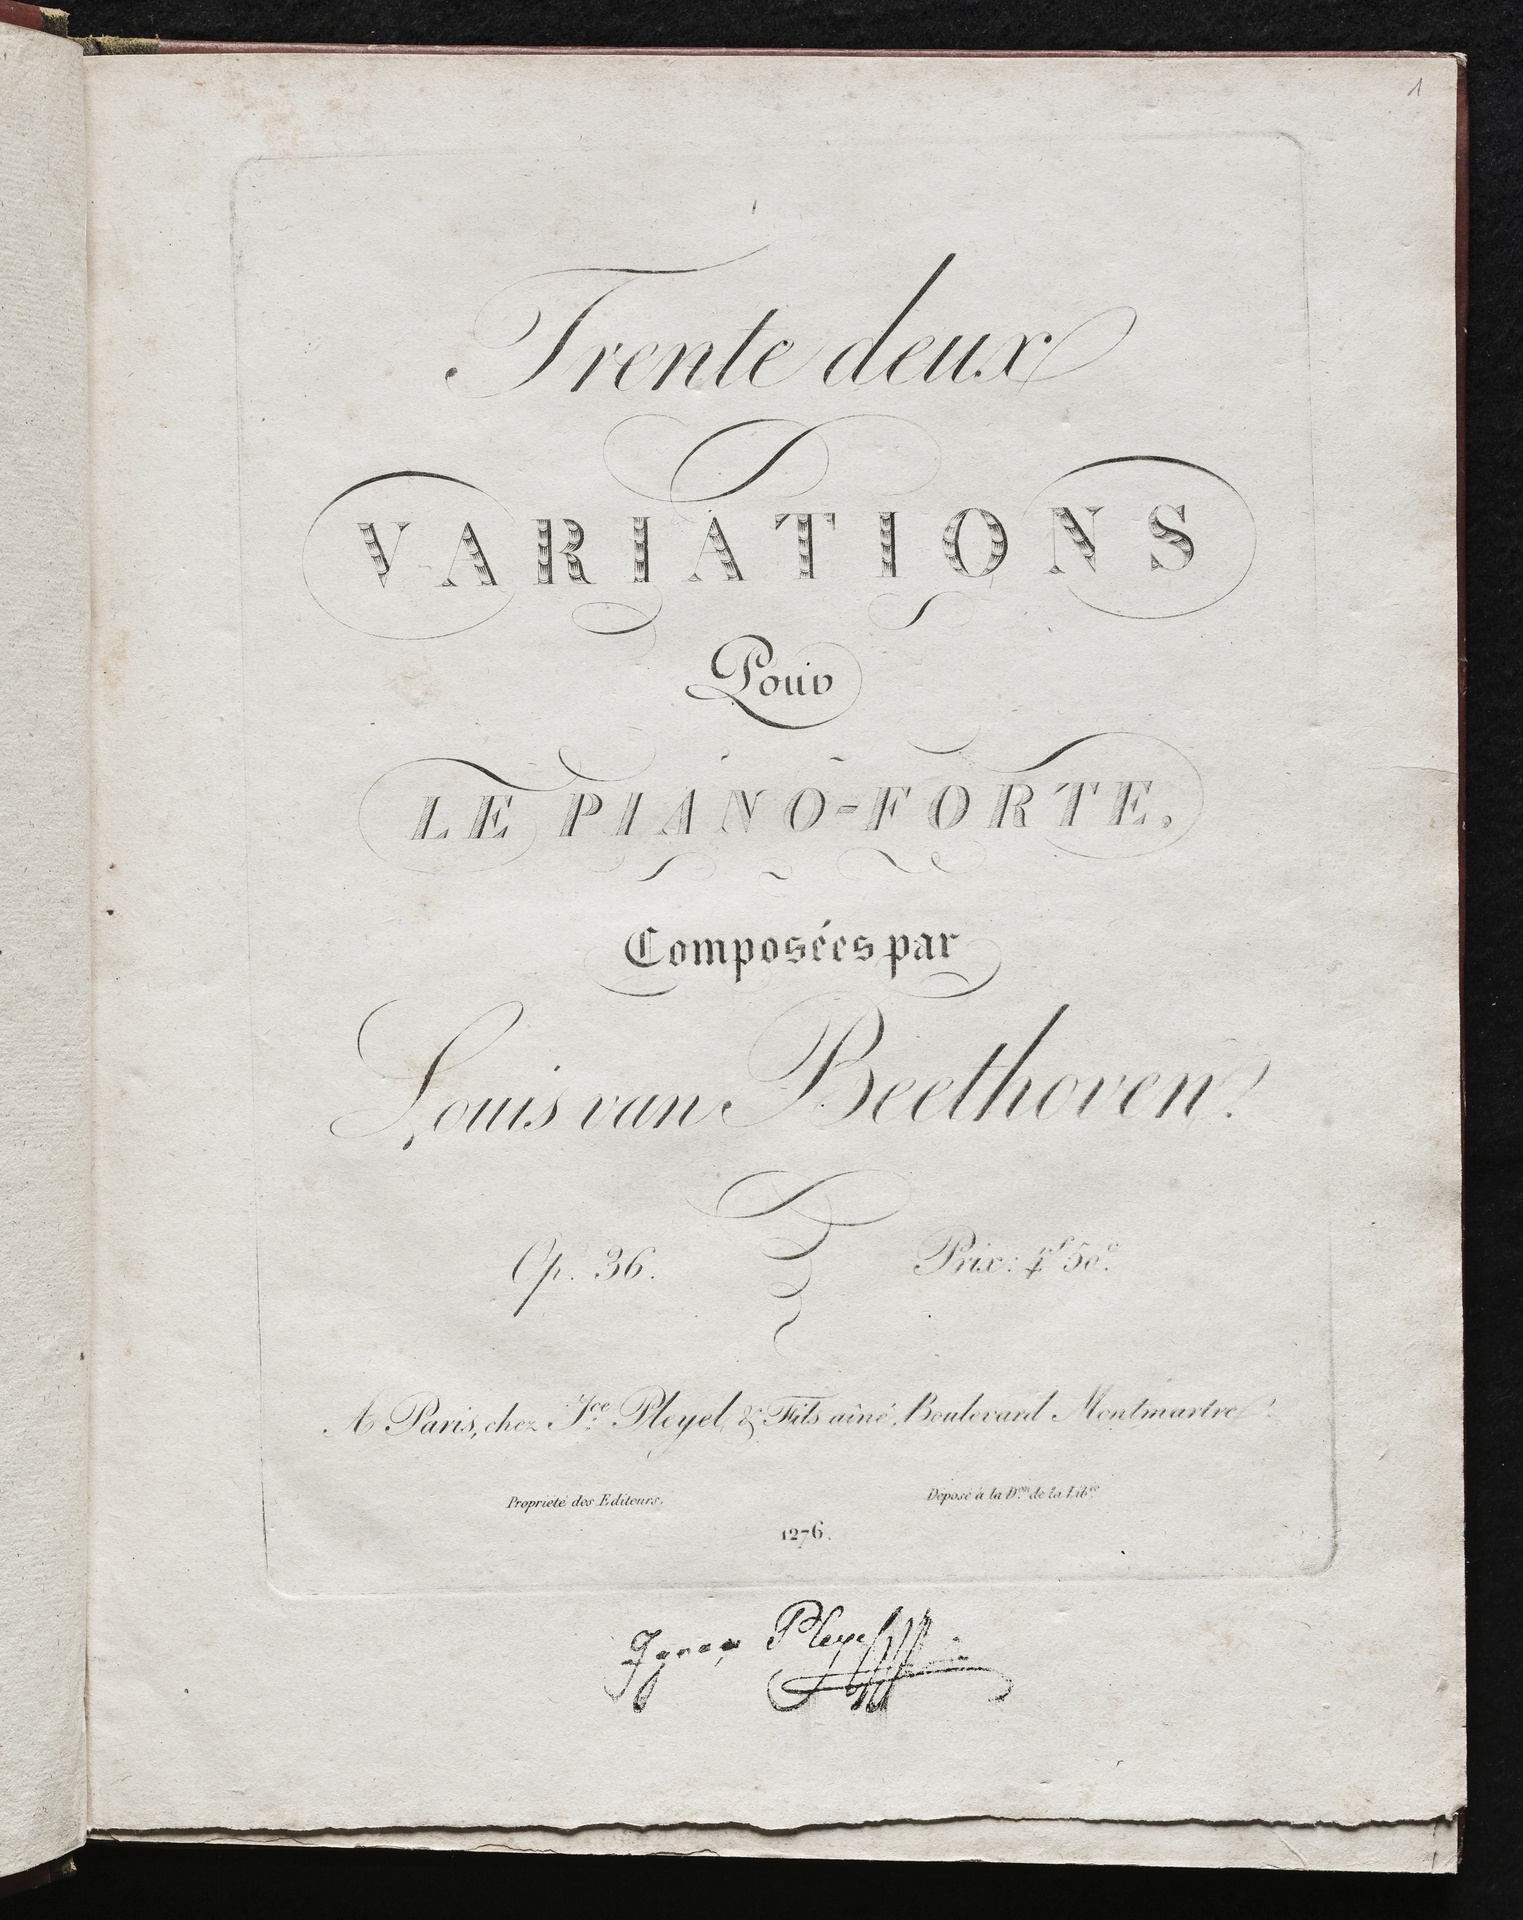 1
Trente deux
VARIATIONS
Pour
LE PIANO-FORTE,
Composées par
Louis van Beethoven.
Op. 36. Prix: 4f 50c.
A Paris, chez Ice. Pleyel & Fils ainé, Boulevard Montmartre.
Propriété des Editeurs. Déposé à la Don. de la Libie.
1276.
Ignace Pleyel